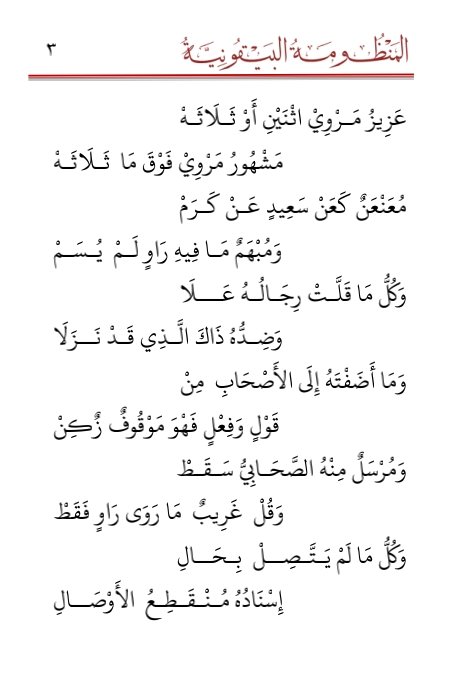 المَنْظُومَةُ البَيْقُونِيَّةُ ٣
عَزِيزُ مَرْوِيْ اثْنَيْنِ أَوْ ثَلَاثَهْ
مَشْهُورُ مَرْوِيْ فَوْقَ مَا ثَلَاثَهْ
مُعَنْعَنٌ كَعَنْ سَعِيدٍ عَنْ كَرَمْ
وَمُبْهَمٌ مَا فِيهِ رَاوٍ لَمْ يُسَمْ
وَكُلُّ مَا قَلَّتْ رِجَالُهُ عَلَا
وَضِدُّهُ ذَاكَ الَّذِي قَدْ نَزَلَا
وَمَا أَضَفْتَهُ إِلَى الأَصْحَابِ مِنْ
قَوْلٍ وَفِعْلٍ فَهْوَ مَوْقُوفٌ زُكِنْ
وَمُرْسَلٌ مِنْهُ الصَّحَابِيُّ سَقَطْ
وَقُلْ غَرِيبٌ مَا رَوَى رَاوٍ فَقَطْ
وَكُلُّ مَا لَمْ يَتَّصِلْ بِحَالِ
إِسْنَادُهُ مُنْقَطِعُ الأَوْصَالِ